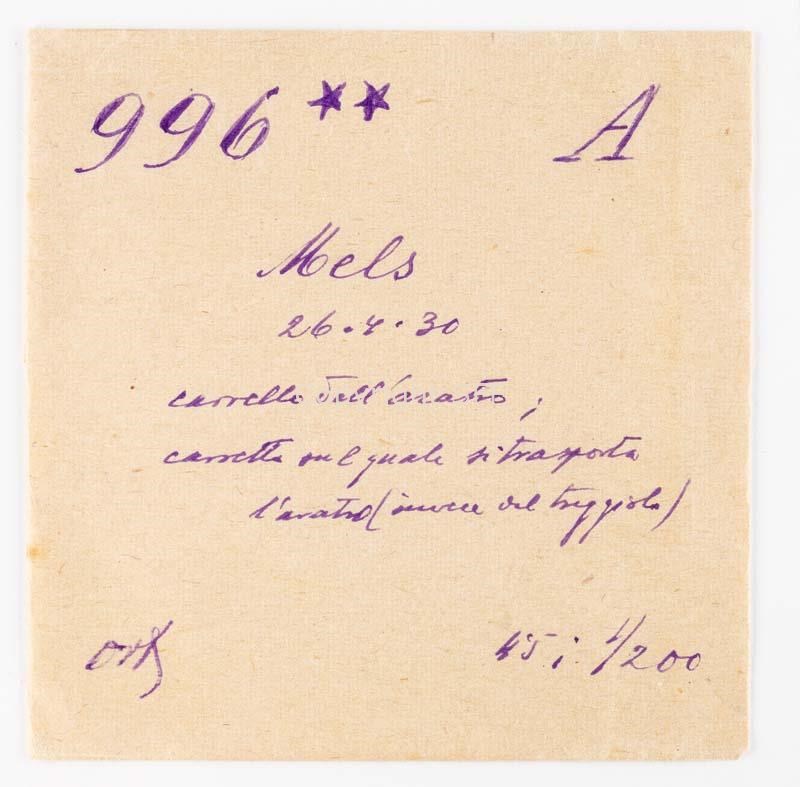 996 ** A
Mels
26.4.30
carrello dell'aratro;
carretto sul quale si trasporta
l'aratro (invece del treggiolo)
orth
45 i 1/200